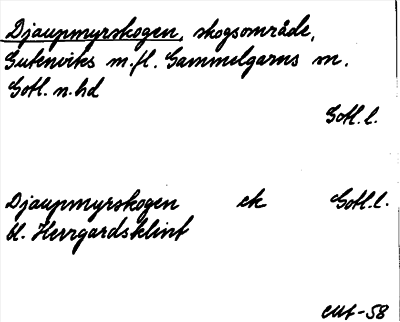 Djaupmyrskogen, skogsområde,
Gutenviks m.fl. Gammelgarns sn.
Gotl. n. hd
Gotl. l.
Djaupmyrskogen ek Gotl. l.
bl. Herrgardsklint